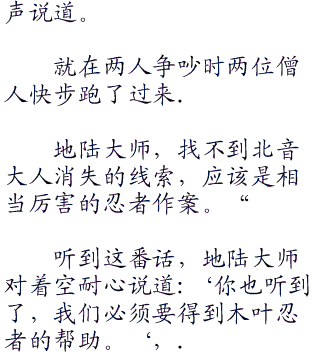 声说道。
就在两人争吵时两位僧
人快步跑了过来.
地陆大师，找不到北音
大人消失的线索，应该是相
当厉害的忍者作案。“
听到这番话，地陆大师
对着空耐心说道：‘你也听到
了，我们必须要得到木叶忍
者的帮助。‘，.